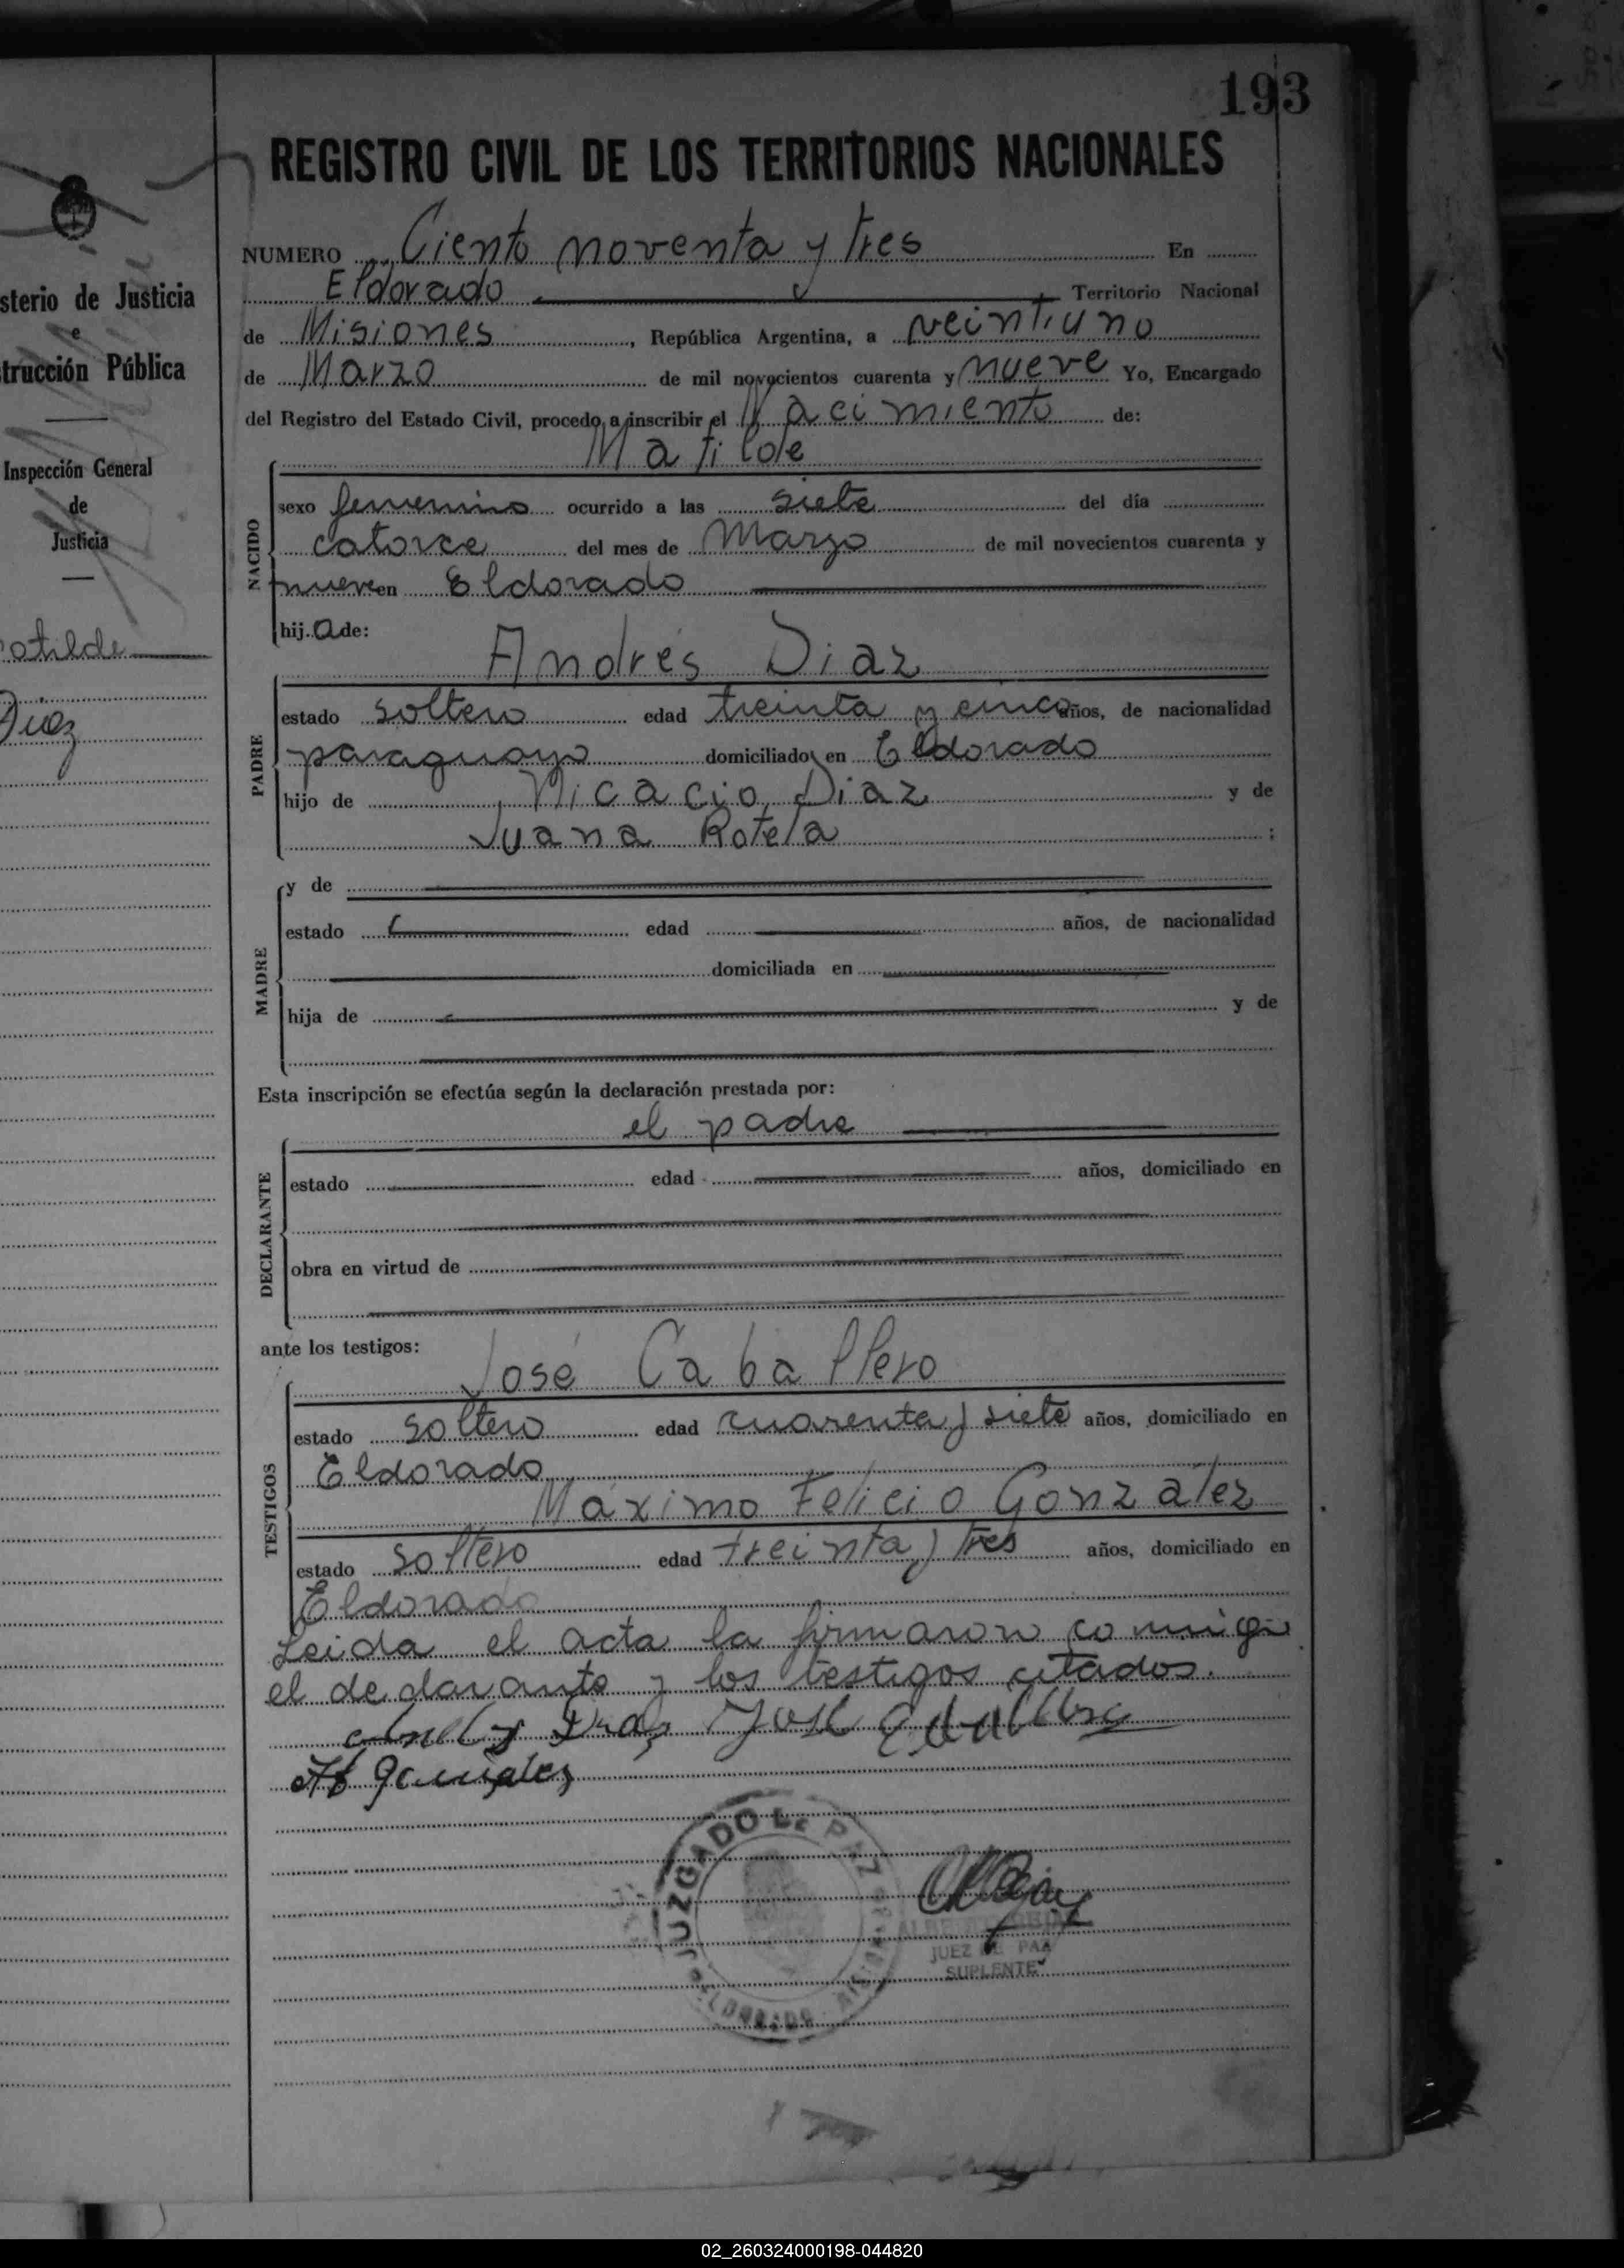 193
REGISTRO CIVIL DE LOS TERRITORIOS NACIONALES
NUMERO Ciento noventa y tres En
Eldorado Territorio Nacional
de Misiones, República Argentina, a veintiuno
de Marzo de mil novecientos cuarenta y nueve Yo, Encargado
del Registro del Estado Civil, procedo a inscribir el Nacimiento de:
Matilde
NACIDO
sexo femenino ocurrido a las siete del día
catorce del mes de Marzo de mil novecientos cuarenta y
nueve en Eldorado
hija de:
Andrés Diaz
PADRE
estado soltero edad treinta y cinco años, de nacionalidad
paraguayo domiciliado en Eldorado
hijo de Nicacio Diaz y de
Juana Rotela ;
MADRE
y de
estado edad años, de nacionalidad
domiciliada en
hija de y de
Esta inscripción se efectúa según la declaración prestada por:
el padre
DECLARANTE
estado edad años, domiciliado en
obra en virtud de
ante los testigos:
José Caballero
TESTIGOS
estado soltero edad cuarenta y siete años, domiciliado en
Eldorado
Máximo Felicio Gonzalez
estado soltero edad treinta y tres años, domiciliado en
Eldorado
Leida el acta la firmaron comigo
el declarante y los testigos citados.
Diaz José Caballero
Gonzalez
JUZGADO DE PAZ
ELDORADO
JUEZ DE PAZ
SUPLENTE
sterio de Justicia
e
trucción Pública
Inspección General
de
Justicia
atilde
Diaz
02_260324000198-044820